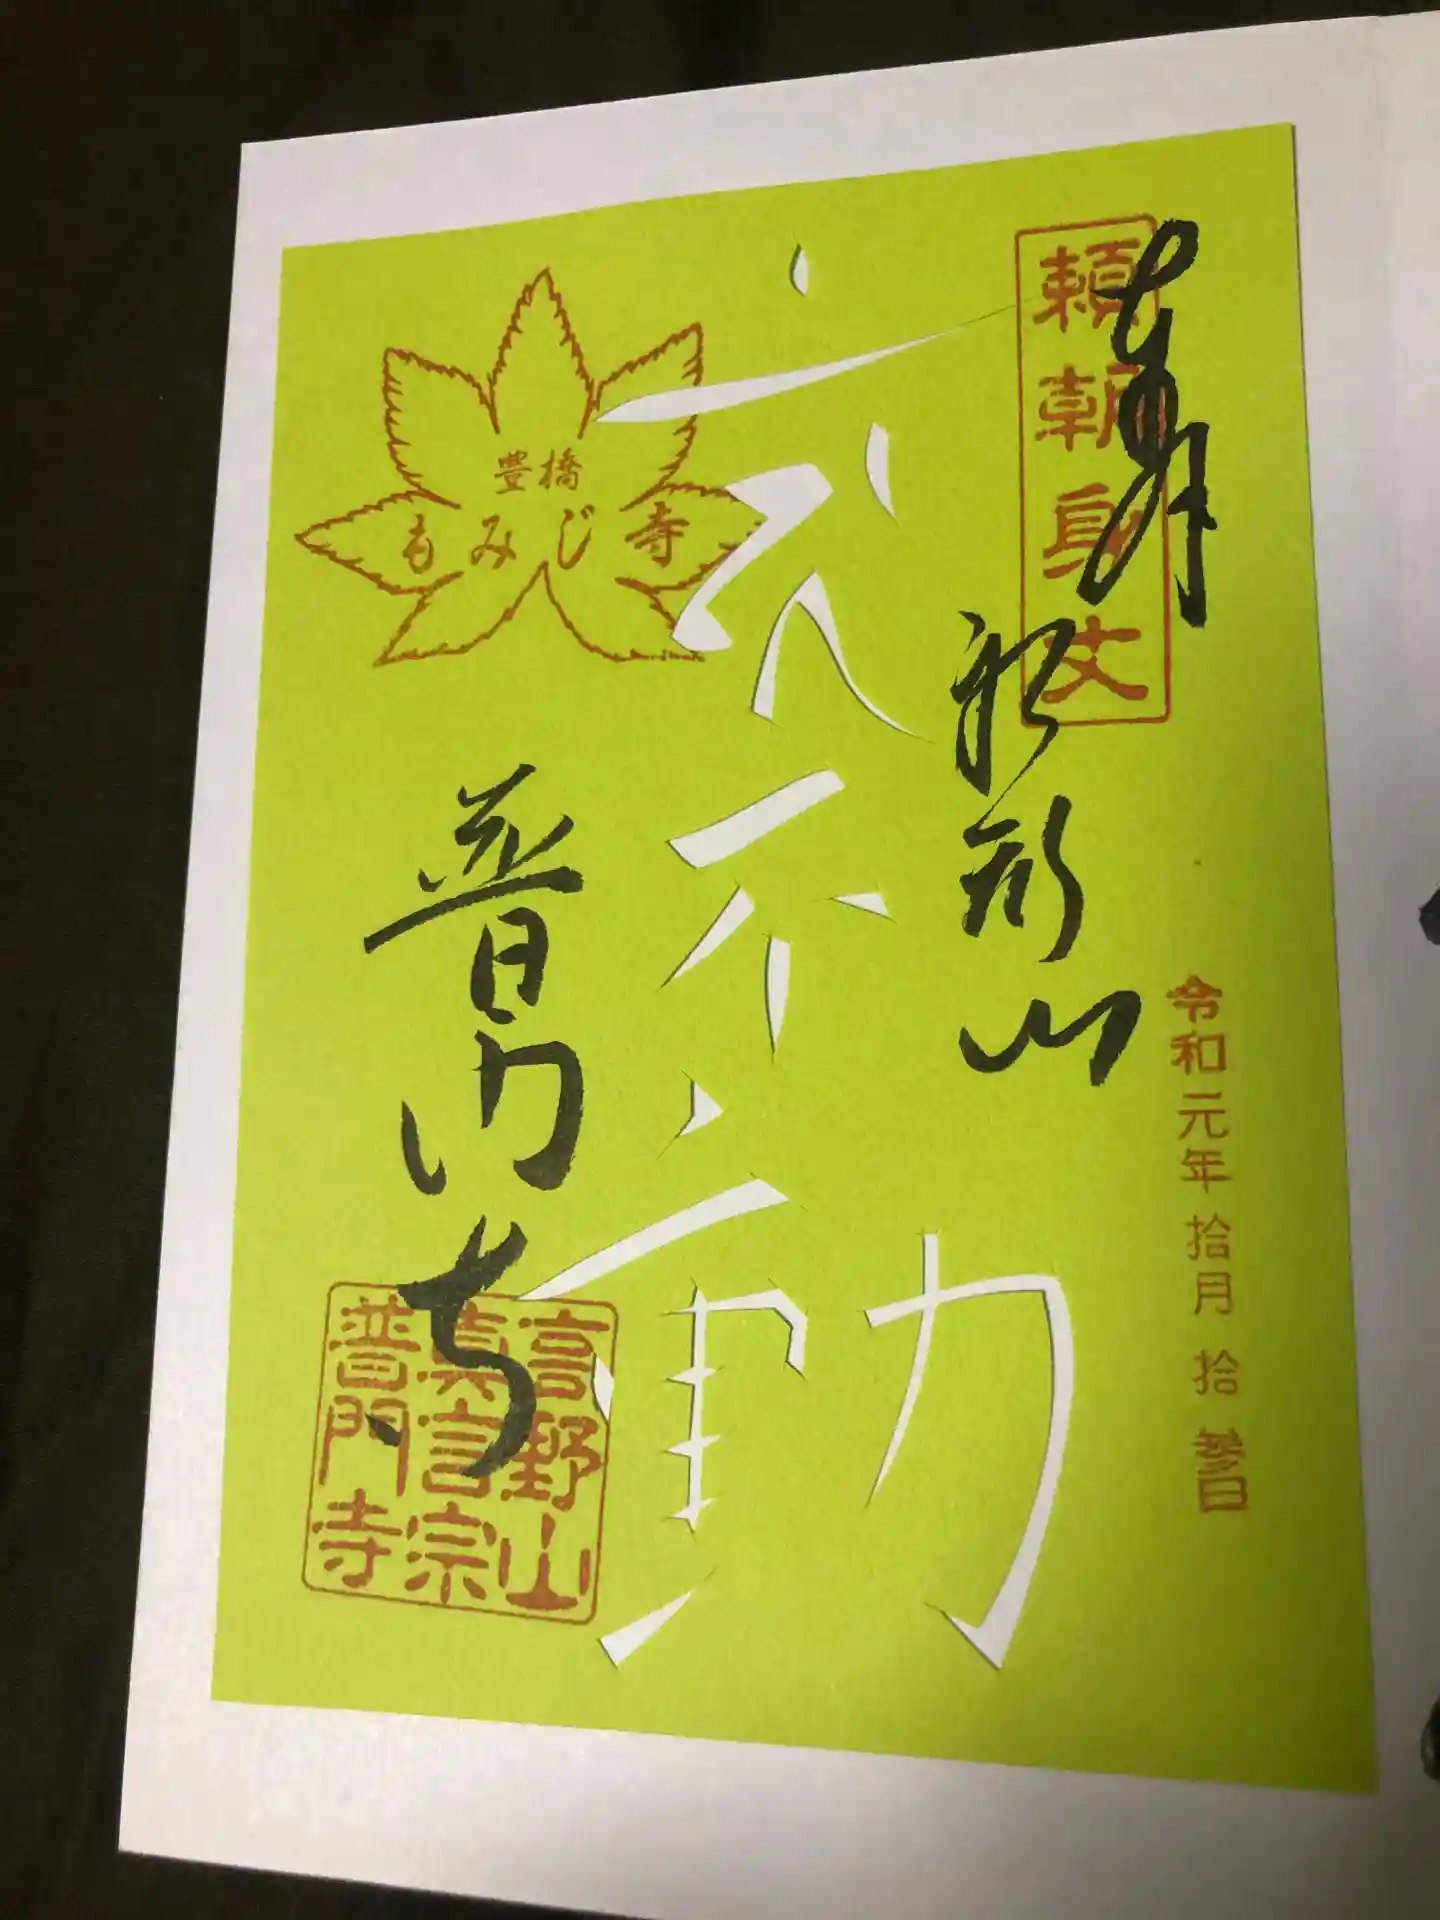 頼朝身丈
奉拝
船形山
令和元年拾月拾参日
不動
豊橋
もみじ寺
普門寺
高野山
真言宗
普門寺